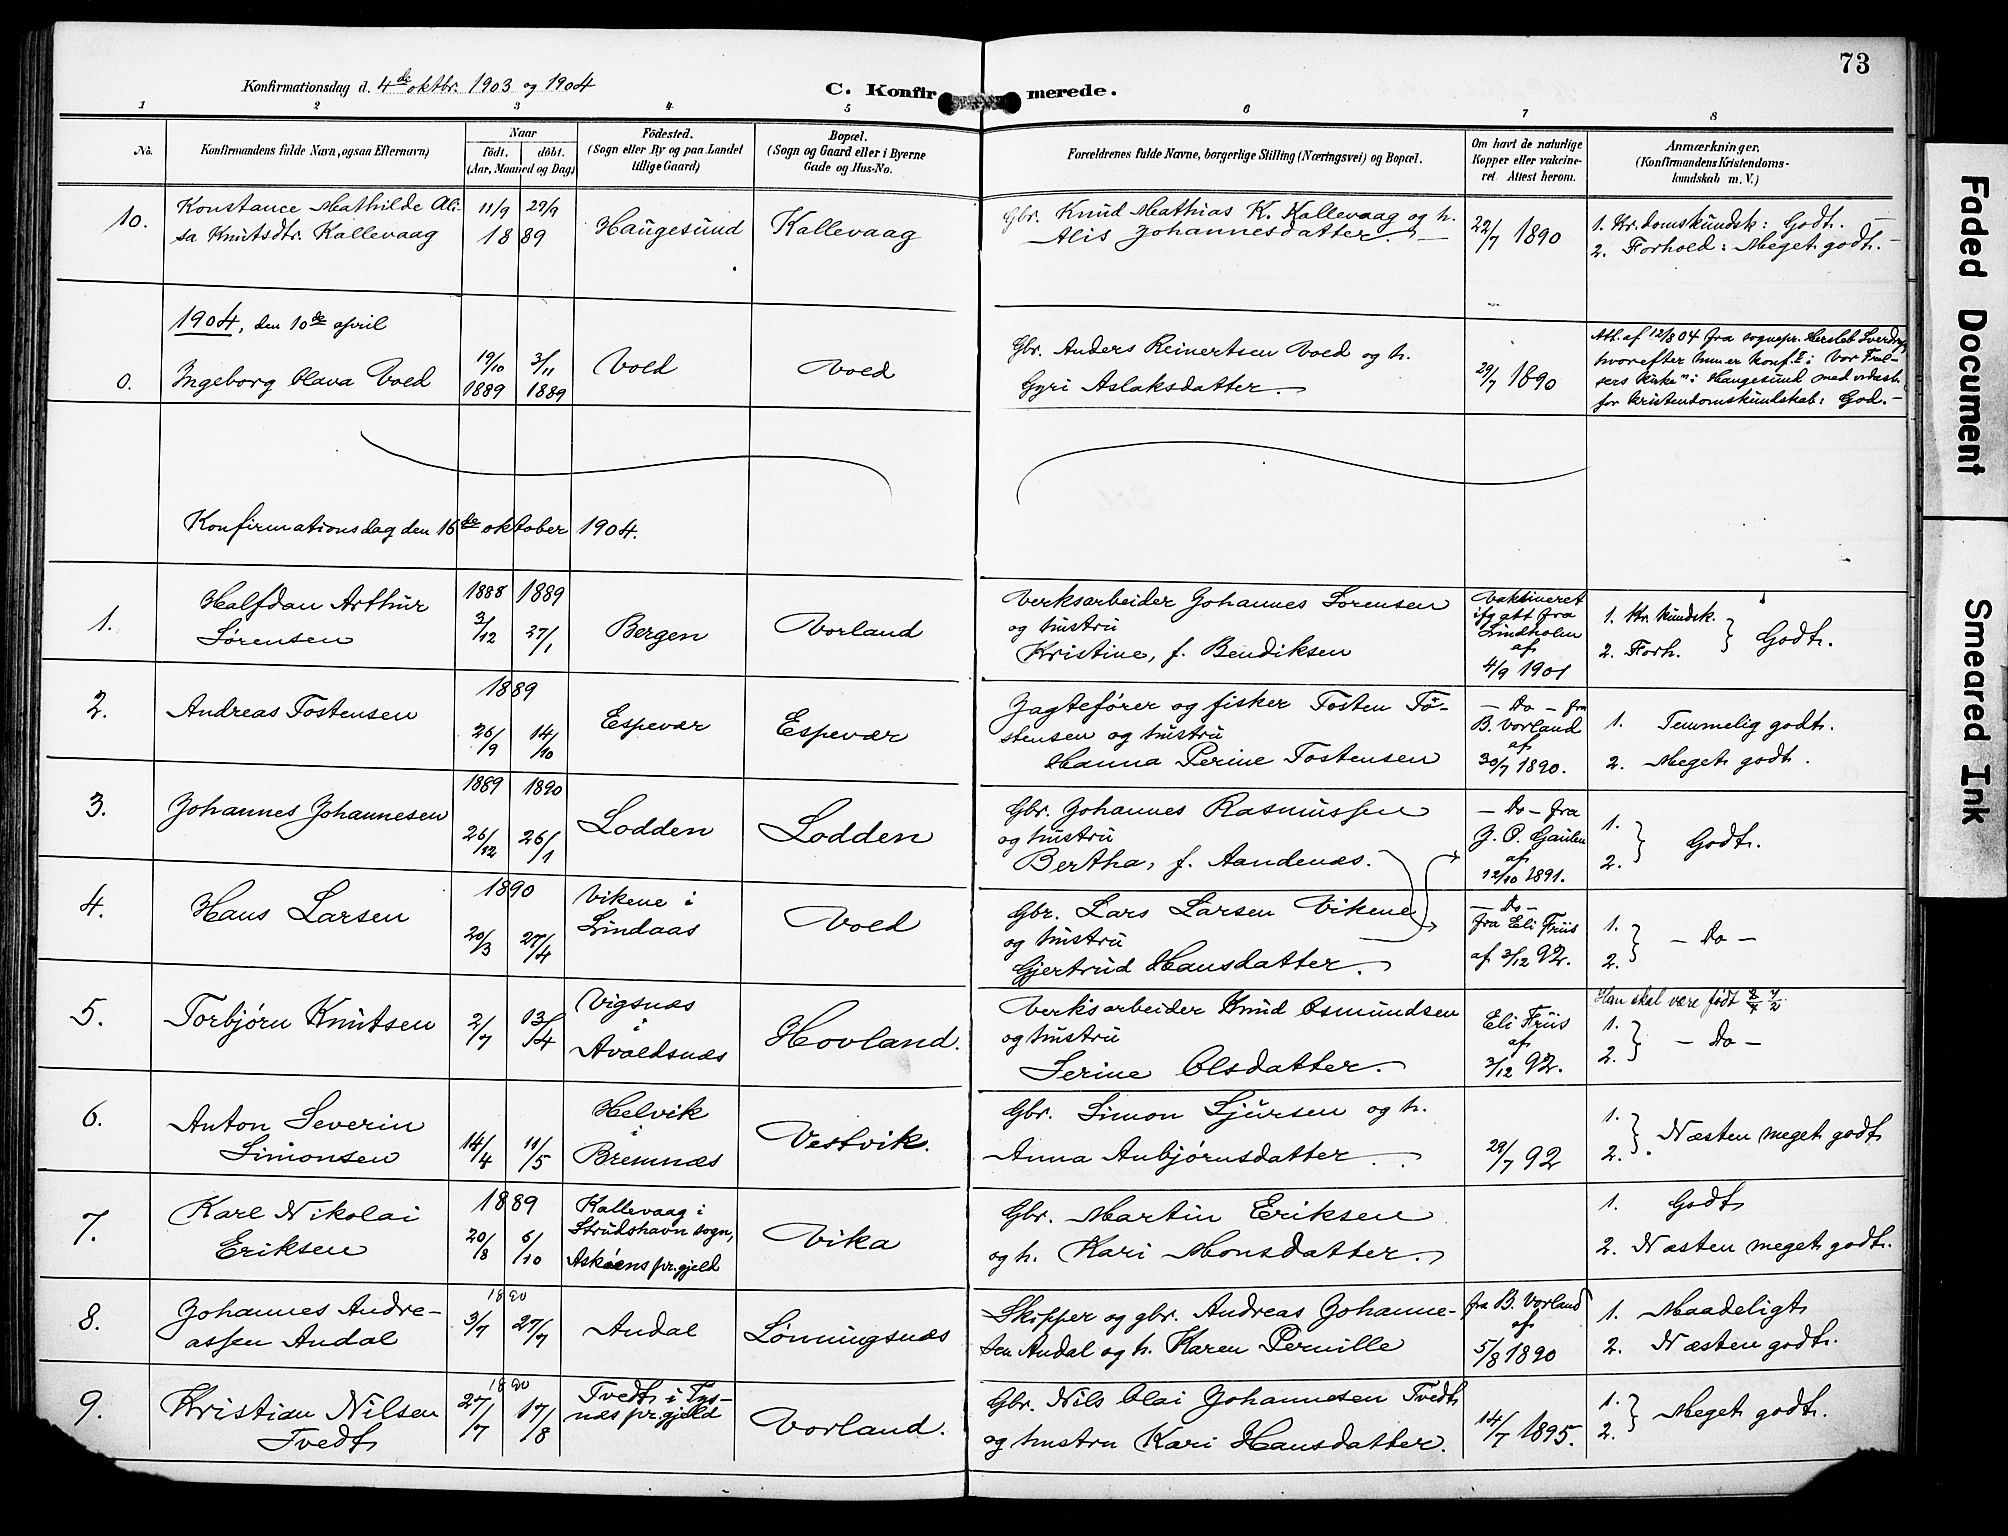 73
Konfirmationsdag d. 4de oktbr. 1903 og 1904
C. Konfirmerede.
1 2 3 4 5 6 7 8
No.
Konfirmandens fulde Navn, ogsaa Efternavn)
Naar
födt. döbt.
(Aar, Maaned og Dag)
Födested.
(Sogn eller By og paa Landet
tillige Gaard)
Bopæl.
(Sogn og Gaard eller i Byerne
Gade og Hus-No.
Forældrenes fulde Navne, borgerlige Stilling (Næringsvei) og Bopæl.
Om havt de naturlige
Kopper eller vakcine-
ret Attest herom.
Anmærkninger.
(Konfirmandens Kristendoms-
kundskab m. V.)
10.
Konstance Mathilde Ali-
sa Knutsdtr. Kallevaag
11/9 29/9
1889
Haugesund
Kallevaag
Gbr. Knud Mathias K. Kallevaag og h.
Alis Johannesdatter.
22/7 1890
1. Kr.domskundsk: Godt. –
2. Forhold: Meget godt. –
1904, den 10de april
0.
Ingeborg Olava Vold
19/10 3/11
1889 1889
Vold
Vold
Gbr. Anders Reinertsen Vold og h.
Gyri Aslaksdatter.
29/7 1890
Att. af 12/8 04 fra sognepr. Hersleb Sverdrup,
hvorefter hun er konf. i "Vor Frel-
sers Kirke" i Haugesund med vidasb.
for kristendomskundskab: God. –
Konfirmationsdag den 16de oktober 1904.
1.
Halfdan Arthur
Sørensen
1888 1889
3/12 27/1
Bergen
Vorland
Verksarbeider Johannes Sørensen
og hustru
Kristine, f. Bendiksen
Vaktineret
ifg att fra
Lindholm
af
4/9 1901
1. Kr. kundsk.
2. Forh.
Godt.
2.
Andreas Tostensen
1889
26/9 14/10
Espevær
Espevær
Jagtefører og fisker Tosten To-
stensen og hustru
Hanna Perine Tostensen
– Do – fra
B. Vorland
af
30/7 1890.
1. Temmelig godt.
2. Meget godt.
3.
Johannes Johannesen
1889 1890
26/12 26/1
Lodden
Lodden
Gbr. Johannes Rasmussen
og hustru
Bertha, f. Aandenæs.
– Do – fra
G. O. Gaulen
af
12/10 1891.
1.
2.
Godt.
4.
Hans Larsen
1890
20/3 27/4
Vikene i
Lindaas
Vold
Gbr. Lars Larsen Vikene
og hustru
Gjertrud Hansdatter.
– Do –
fra Eli Friis
af 3/12 92.
1.
2.
– Do –
5.
Torbjørn Knutsen
2/7 13/4
Vigsnæs
i
Avaldsnæs
Hovland.
Verksarbeider Knud Osmundsen
og hustru
Serine Olsdatter.
Eli Friis
af
3/12 92.
Han skal være født
1.
2.
– Do –
6.
Anton Severin
Simonsen
14/4 11/5
Helvik
i
Bremnæs
Vestvik.
Gbr. Simon Sjursen og h.
Anna Anbjørnsdatter
29/7 92
1.
2.
Næsten meget godt
7.
Karl Nikolai
Eriksen
1889
20/8 6/10
Kallevaag i
Strudshavn sogn,
Askøens pr.gjeld
Vika
Gbr. Martin Eriksen
og h. Kari Monsdatter.
1. Godt
2. Næsten meget godt.
8.
Johannes Andre-
assen Andal
1890
3/7 27/7
Andal
Lønningsnæs
Skipper og gbr. Andreas Johanne-
sen Andal og h. Karen Pernille
fra B. Vorland
af
5/8 1890
1. Maadeligt
2. Næsten godt.
9.
Kristian Nilsen
Tvedt
1890
27/7 17/8
Tvedt i Tys-
næs pr.gjeld
Vorland.
Gbr. Nils Olai Johannesen Tvedt
og hustru Kari Hansdatter.
14/7 1895.
1.
2.
Meget godt.
Faded Document
Smeared Ink